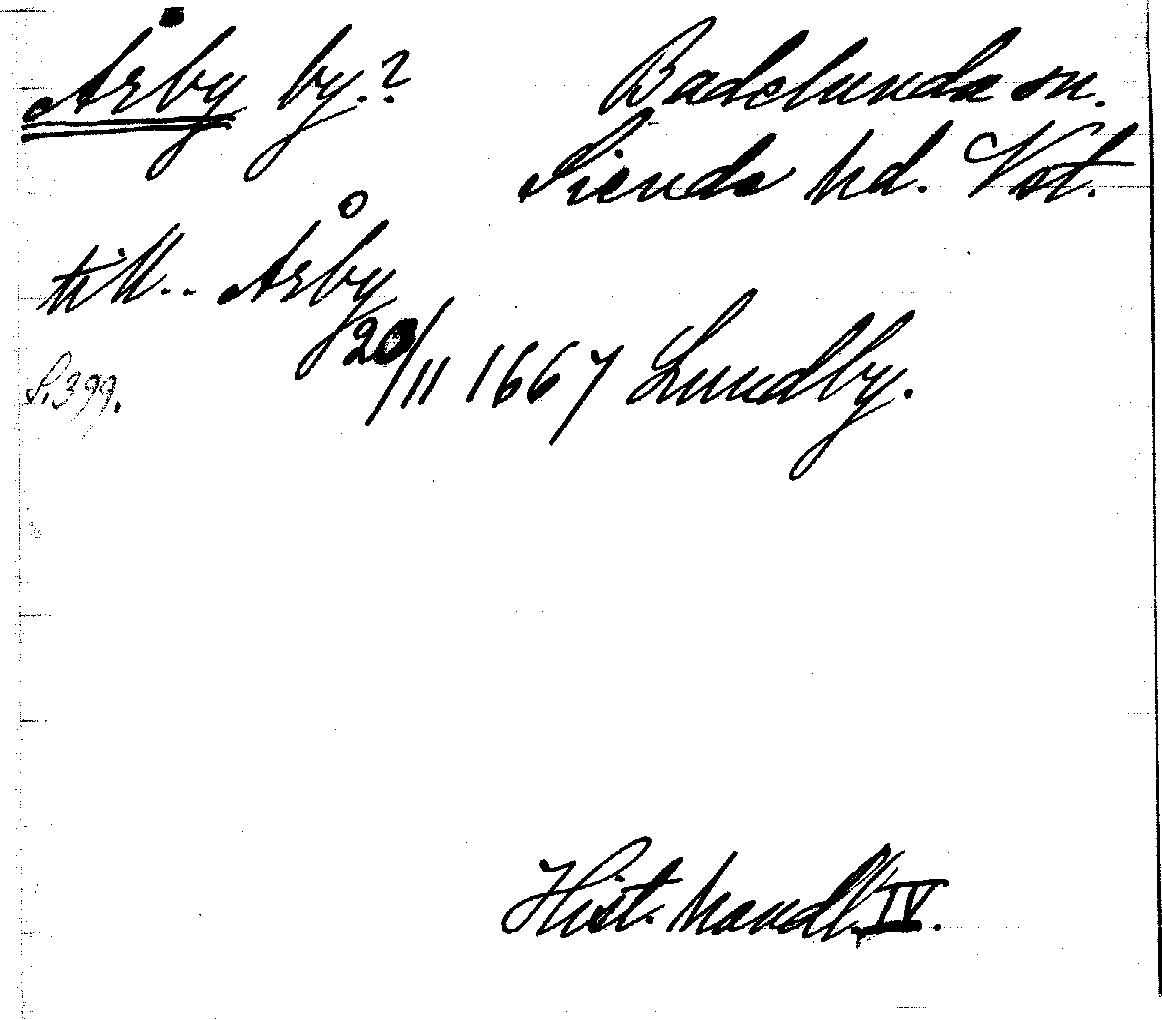 Årby by.? Badelunda sn.
Siende hd. Vst.
till.. Årby
20/11 1667 Lundby.
S. 399.
Hist. handl. IV.